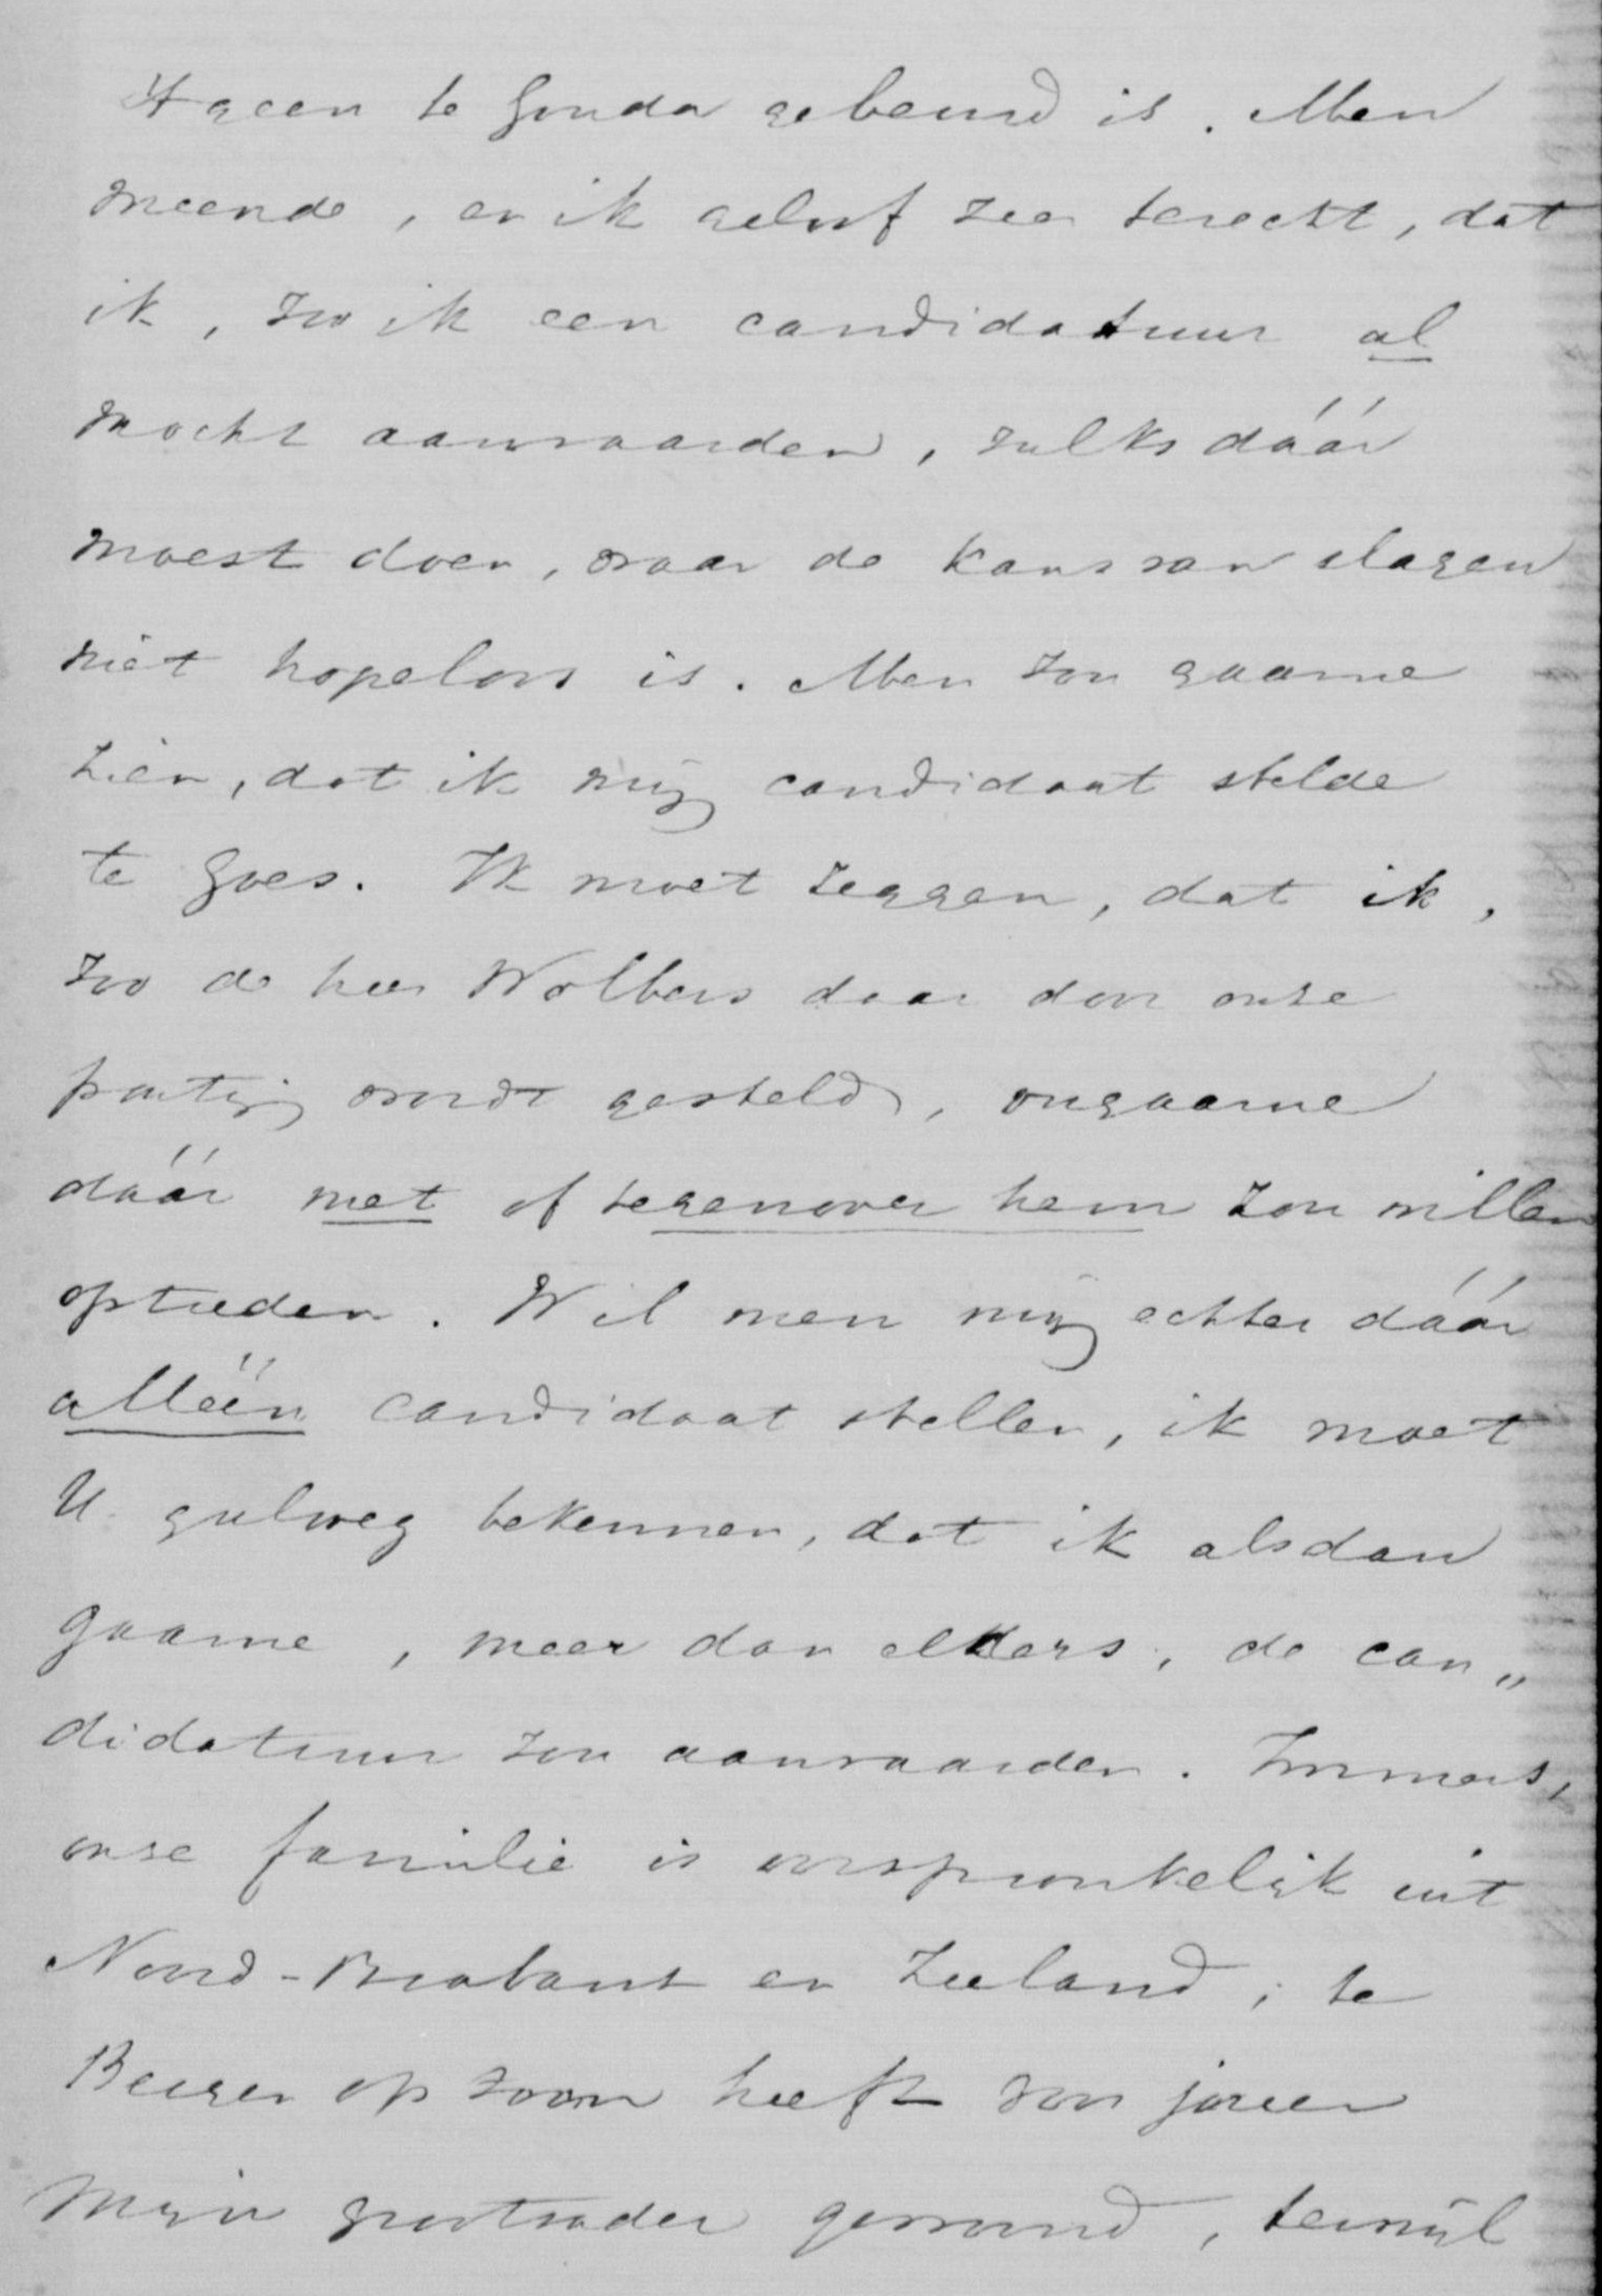 'tgeen te Gouda gebeurd is. Men
meende, en ik geloof zeer terecht, dat
ik, zoo ik een candidatuur al
mocht aanvaarden, zulks dáár
moest doen, waar de kans van slagen
niet hopeloos is. Men zou gaarne
zien, dat ik mij candidaat stelde
te Goes. Ik moet zeggen, dat ik,
zoo de heer Wolbers daar door onze
partij wordt gesteld, ongaarne
dáár met of tegenover hem zou willen
optreden. Wil men mij echter dáár
alléén candidaat stellen, ik moet
U gulweg bekennen, dat ik alsdan
gaarne, meer dan elders, de can„
didatuur zou aanvaarden. Immers,
onze familie is oorspronkelijk uit
Noord-Brabant en Zeeland; te
Bergen op Zoom heeft voor jaren
mijn grootvader gewoond, terwijl